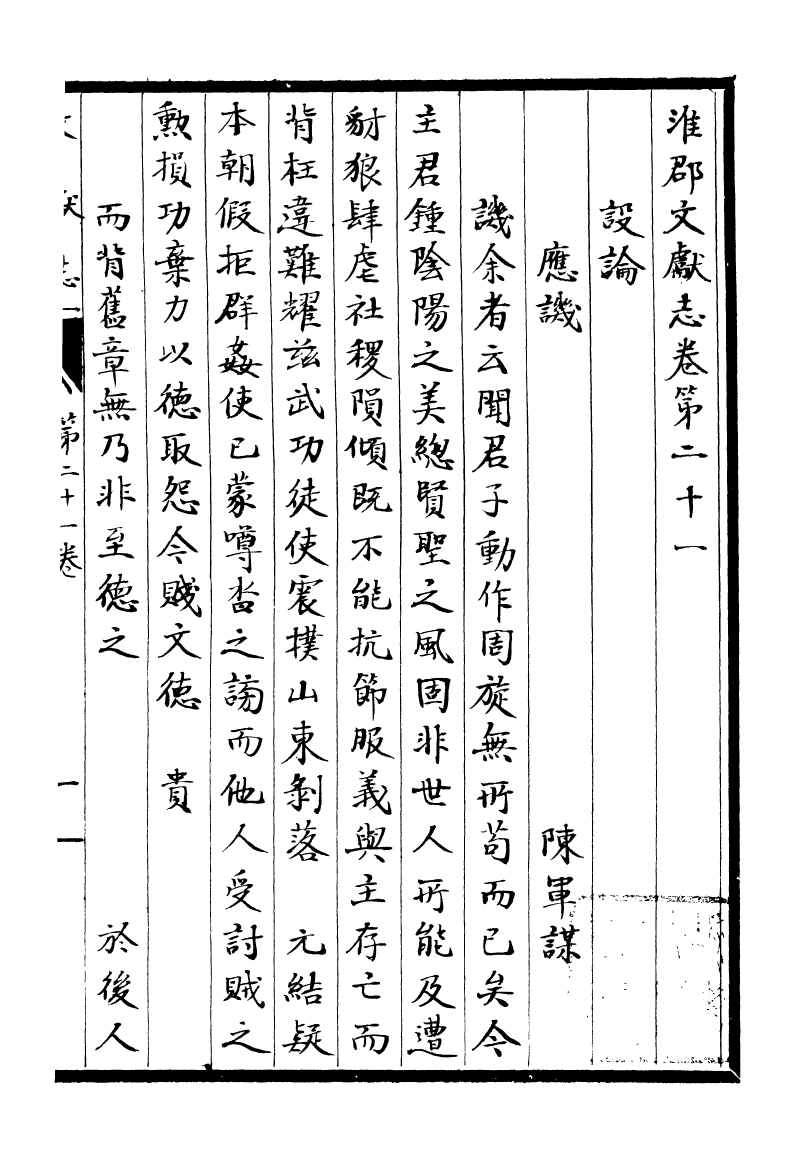 淮郡文獻志卷第二十一
設論
應譏　陳軍謀
譏余者云聞君子動作周旋無所苟而已矣今
主君鍾陰陽之美總賢聖之風固非世人所能及遭
豺狼肆虐社稷隕傾既不能抗節服義與主存亡而
背枉違難耀茲武功徒使震撲山東剝落　元結疑
本朝假拒群姦使已蒙噂沓之謗而他人受討賊之
勲損功棄力以德取怨今賤文德　貴
而背舊章無乃非至德之　於後人
文獻志　第二十一卷　一